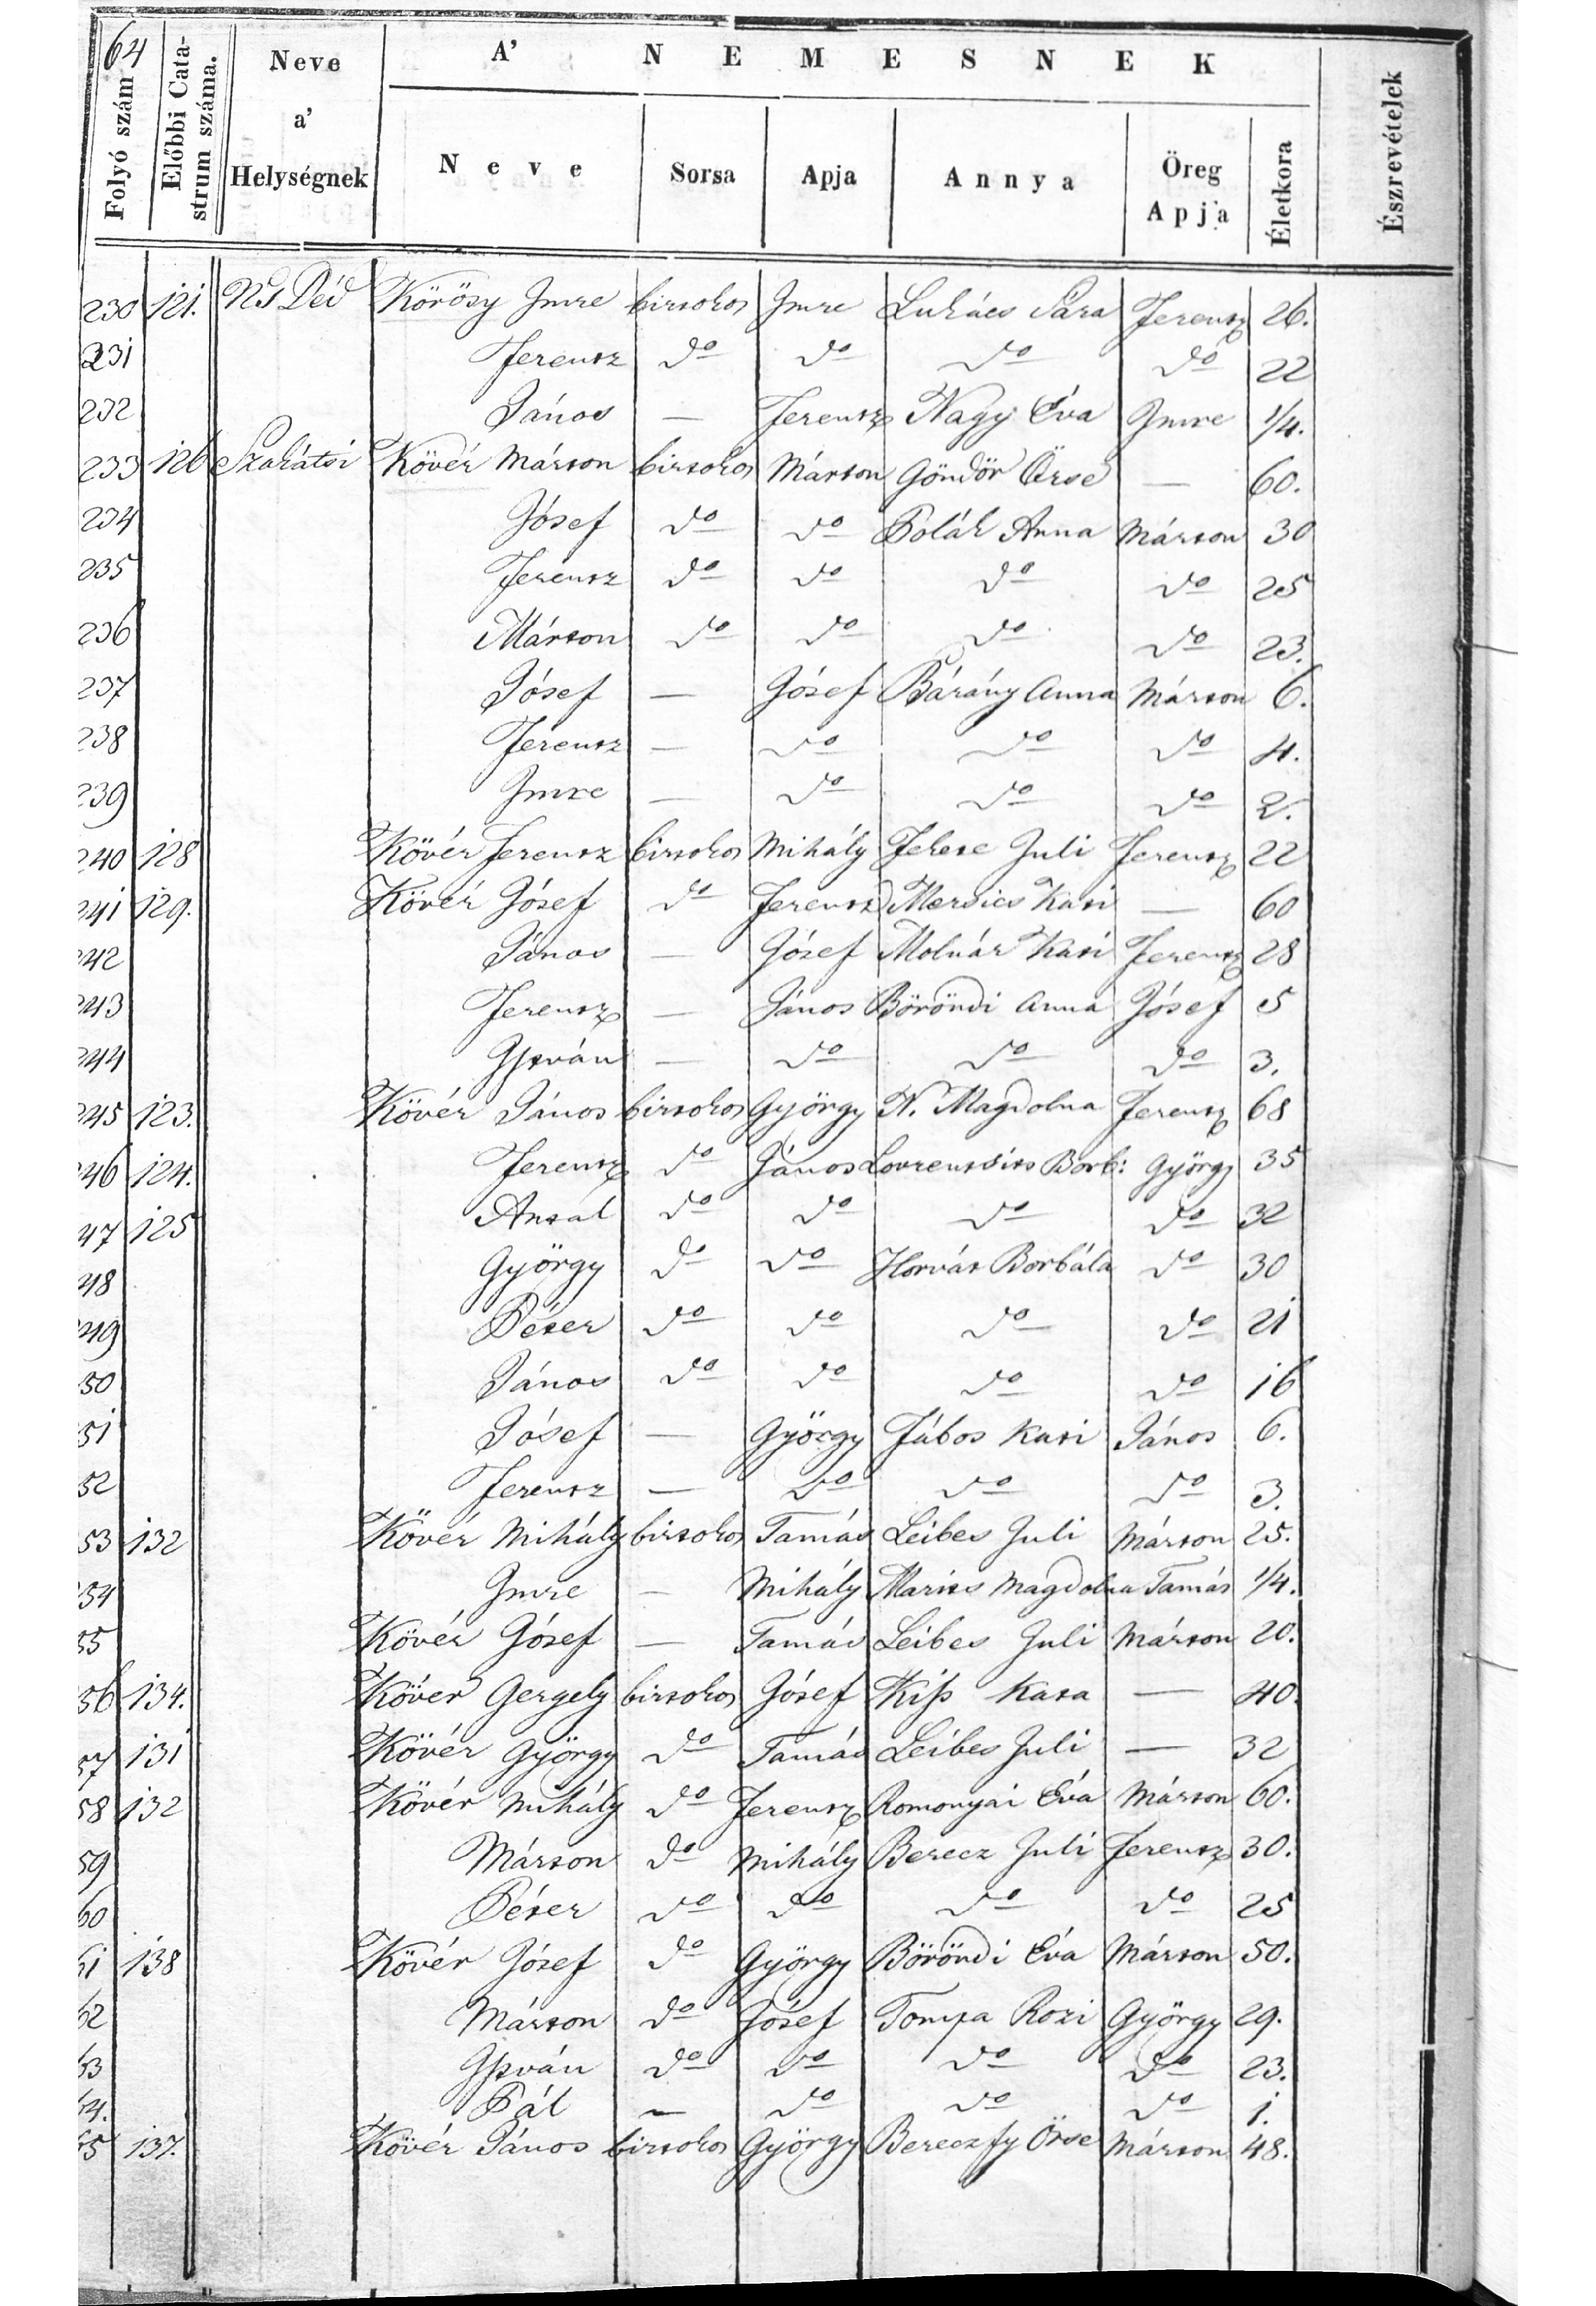 64
Folyó szám
Előbbi Catastrum száma.
Neve a' Helységnek
A' NEMESNEK
Neve Sorsa Apja Annya Öreg Apja Életkora
Észrevételek
230 121. Ns Déd Körösy Imre birtokos Imre Lukács Sára Ferentz 26.
231 Ferentz do do do do 22
232 János — Ferentz Nagy Éva Imre 1/4.
233 126 Szakátsi Kövér Márton birtokos Márton Göndör Örse — 60.
234 Jósef do do Polák Anna Márton 30
235 Ferentz do do do do 25
236 Márton do do do do 23.
237 Jósef — Jósef Bárány Anna Márton 6.
238 Ferentz — do do do 4.
239 Imre — do do do 2.
240 128 Kövér Ferentz birtokos Mihály Fekete Juli Ferentz 22
241 129. Kövér Jósef do Ferentz Mersics Kati — 60
242 János — Jósef Molnár Kati Ferentz 28
243 Ferentz — János Böröndi Anna Jósef 5
244 István — do do do 3.
245 123. Kövér János birtokos György N. Magdolna Ferentz 68
246 124. Ferentz do János Lovrentsits Borb: György 35
47 125 Antal do do do do 32
48 György do do Horvát Borbála do 30
49 Péter do do do do 21
50 János do do do do 16
51 Jósef — György Fábos Kati János 6.
52 Ferentz — do do do 3.
53 132 Kövér Mihály birtokos Tamás Leibes Juli Márton 25.
54 Imre — Mihály Marits Magdolna Tamás 1/4.
55 Kövér Jósef — Tamás Leibes Juli Márton 20.
56 134. Kövér Gergely birtokos Jósef Kiss Kata — 40.
57 131 Kövér György do Tamás Leibes Juli — 32
58 132 Kövér Mihály do Ferentz Romonyai Éva Márton 60.
59 Márton do Mihály Berecz Juli Ferentz 30.
60 Péter do do do do 25
61 138 Kövér Jósef do György Böröndi Éva Márton 50.
62 Márton do Jósef Tompa Rozi György 29.
63 István do do do do 23.
64. Pál — do do do 1.
65 137. Kövér János birtokos György Bereczfy Örse Márton 48.